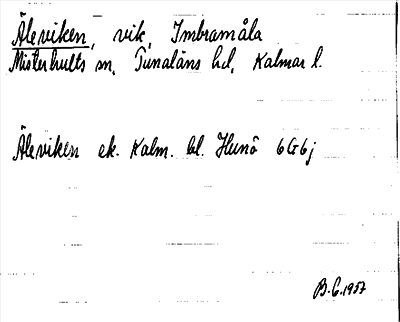 Äleviken, vik, Imbramåla
Misterhults sn, Tunaläns hd, Kalmar l.
Äleviken ek. Kalm. bl. Hunö 6G6j
B.G. 1957